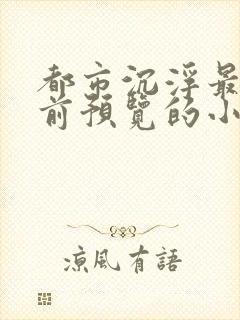 都市沉浮最
前預覽的小
涼風有語